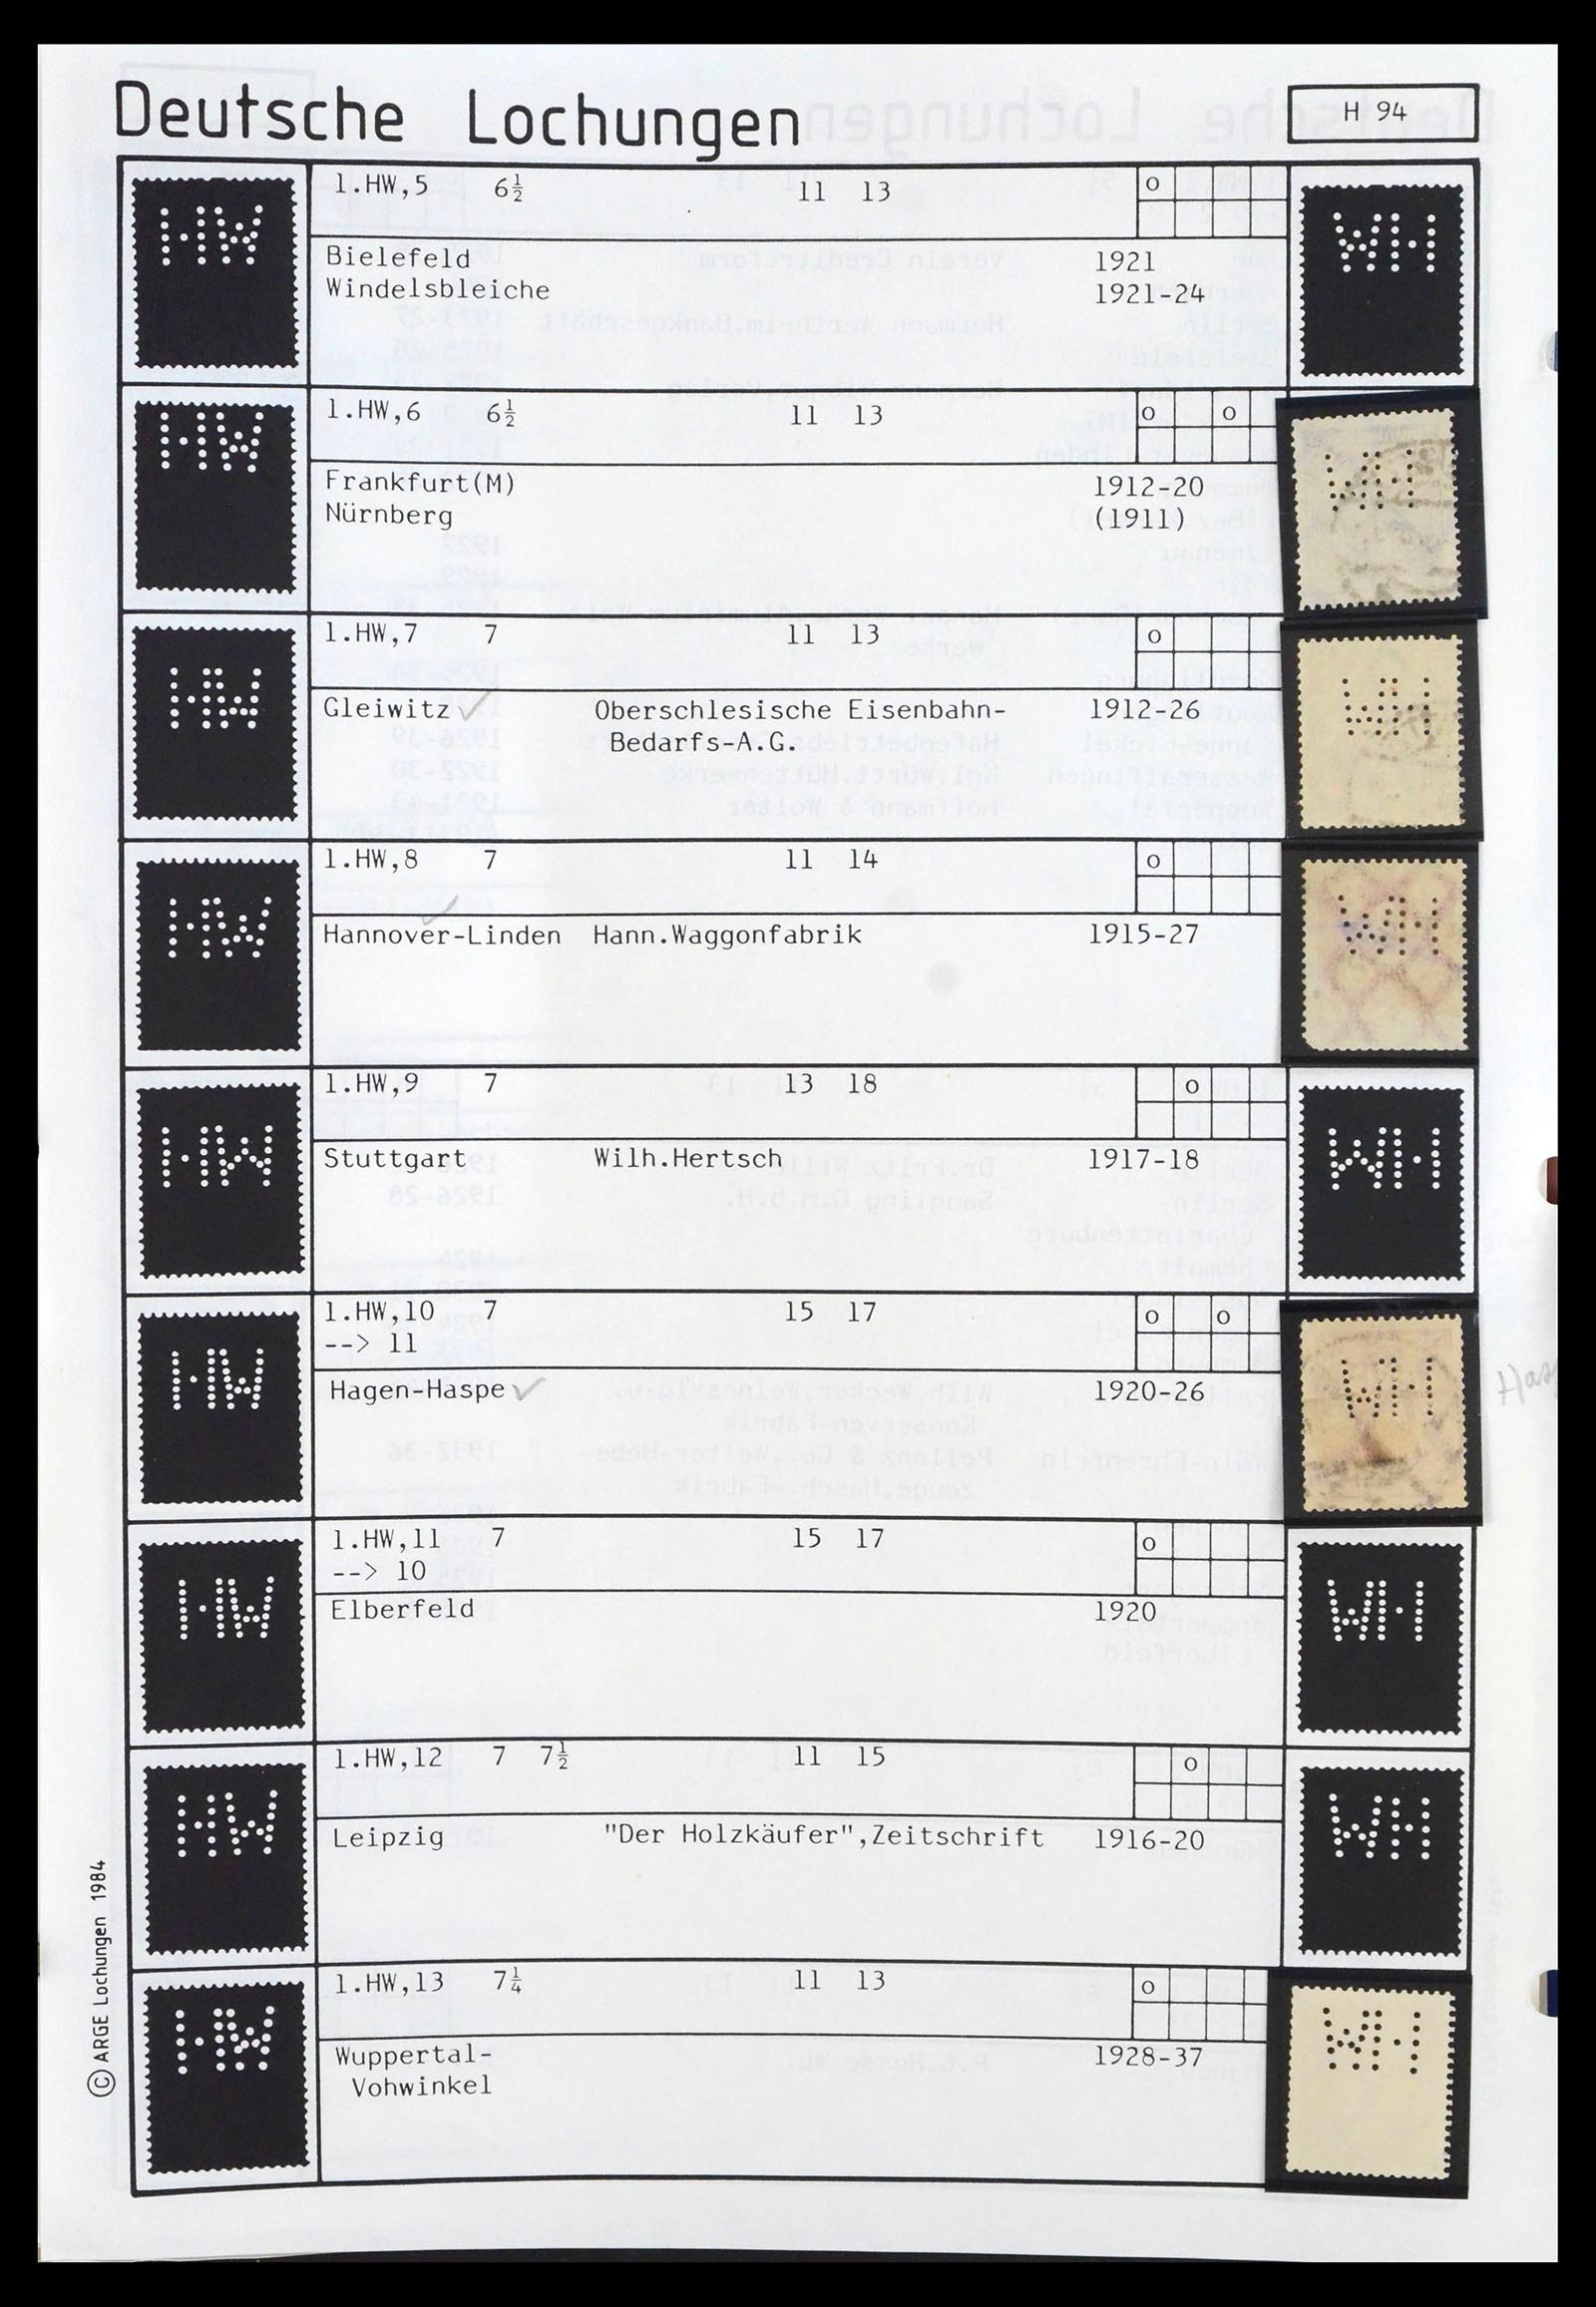 Deutsche Lochungen
H 94
HW
1.HW,5 6½ 11 13
o
Bielefeld 1921
Windelsbleiche 1921-24
HW
1.HW,6 6½ 11 13
o o
Frankfurt(M) 1912-20
Nürnberg (1911)
HW
1.HW,7 7 11 13
o
Gleiwitz Oberschlesische Eisenbahn- 1912-26
Bedarfs-A.G.
HW
1.HW,8 7 11 14
o
Hannover-Linden Hann.Waggonfabrik 1915-27
HW
1.HW,9 7 13 18
o
Stuttgart Wilh.Hertsch 1917-18
HW
1.HW,10 7 15 17
o o
--> 11
Hagen-Haspe 1920-26
HW
1.HW,11 7 15 17
o
--> 10
Elberfeld 1920
HW
1.HW,12 7 7½ 11 15
o
Leipzig "Der Holzkäufer",Zeitschrift 1916-20
HW
1.HW,13 7¼ 11 13
o
Wuppertal- 1928-37
Vohwinkel
© ARGE Lochungen 1984